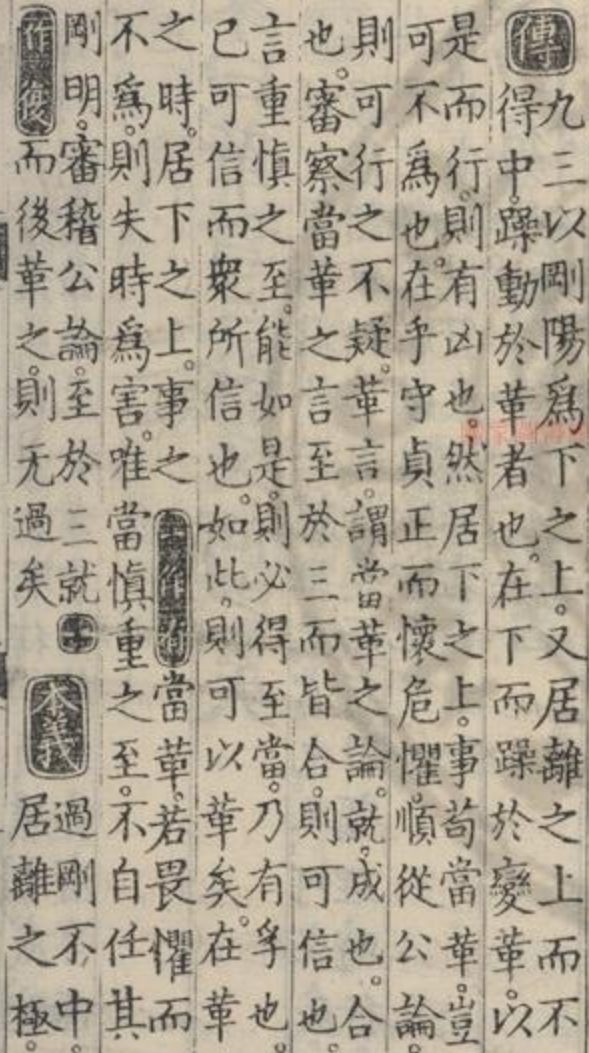 傳
九三以剛陽爲下之上。又居離之上而不
得中。躁動於革者也。在下而躁於變革。以
是而行。則有凶也。然居下之上。事苟當革。豈
可不爲也。在乎守貞正而懷危懼。順從公論。
則可行之不疑。革言。謂當革之論。就。成也。合
也。審察當革之言。至於三而皆合。則可信也。
言重慎之至。能如是。則必得至當。乃有孚也。
已可信而衆所信也。如此。則可以革矣。在革
之時。居下之上。事之
當革。若畏懼而
不爲。則失時爲害。唯當慎重之至。不自任其
剛明。審稽公論。至於三就
作復
而後革之。則无過矣
本義
過剛不中。
居離之極。